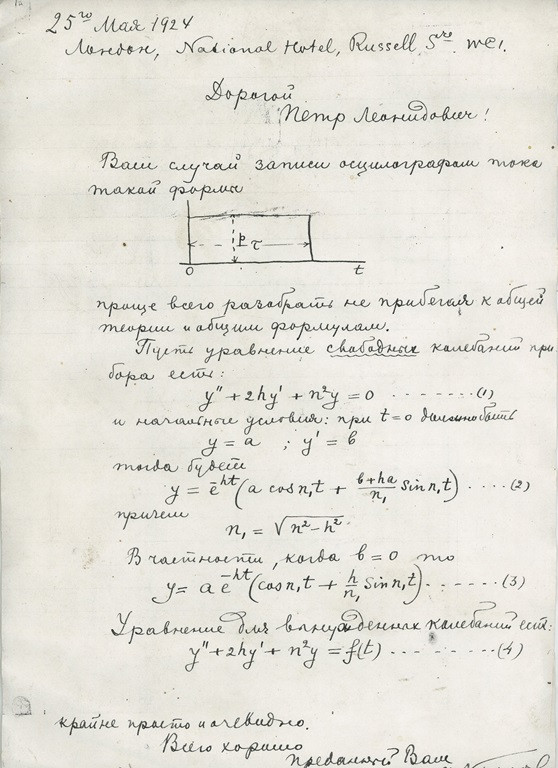 25го Мая 1924
Лондон, National Hotel, Russell Sqre. WC1.
Дорогой
Петр Леонидович!
Ваш случай записи осцилографом тока
такой формы
p
τ
0 t
проще всего разобрать не прибегая к общей
теории и общим формулам.
Пусть уравнение свободных колебаний при
бора есть:
y'' + 2hy' + n²y = 0 -------(1)
и начальные условия: при t=0 должно быть
y = a ; y' = b
тогда будет
y = e^{-ht} (a cos n₁t + \frac{b+ha}{n₁} Sin n₁t) ....(2)
причем
n₁ = √(n²-h²)
В частности, когда b=0 то
y = a e^{-ht} (cos n₁t + \frac{h}{n₁} Sin n₁t) -------(3)
Уравнение для вынужденных колебаний есть:
y'' + 2hy' + n²y = f(t) ---------(4)
крайне просто и очевидно.
Всего хорошо
преданный Ваш